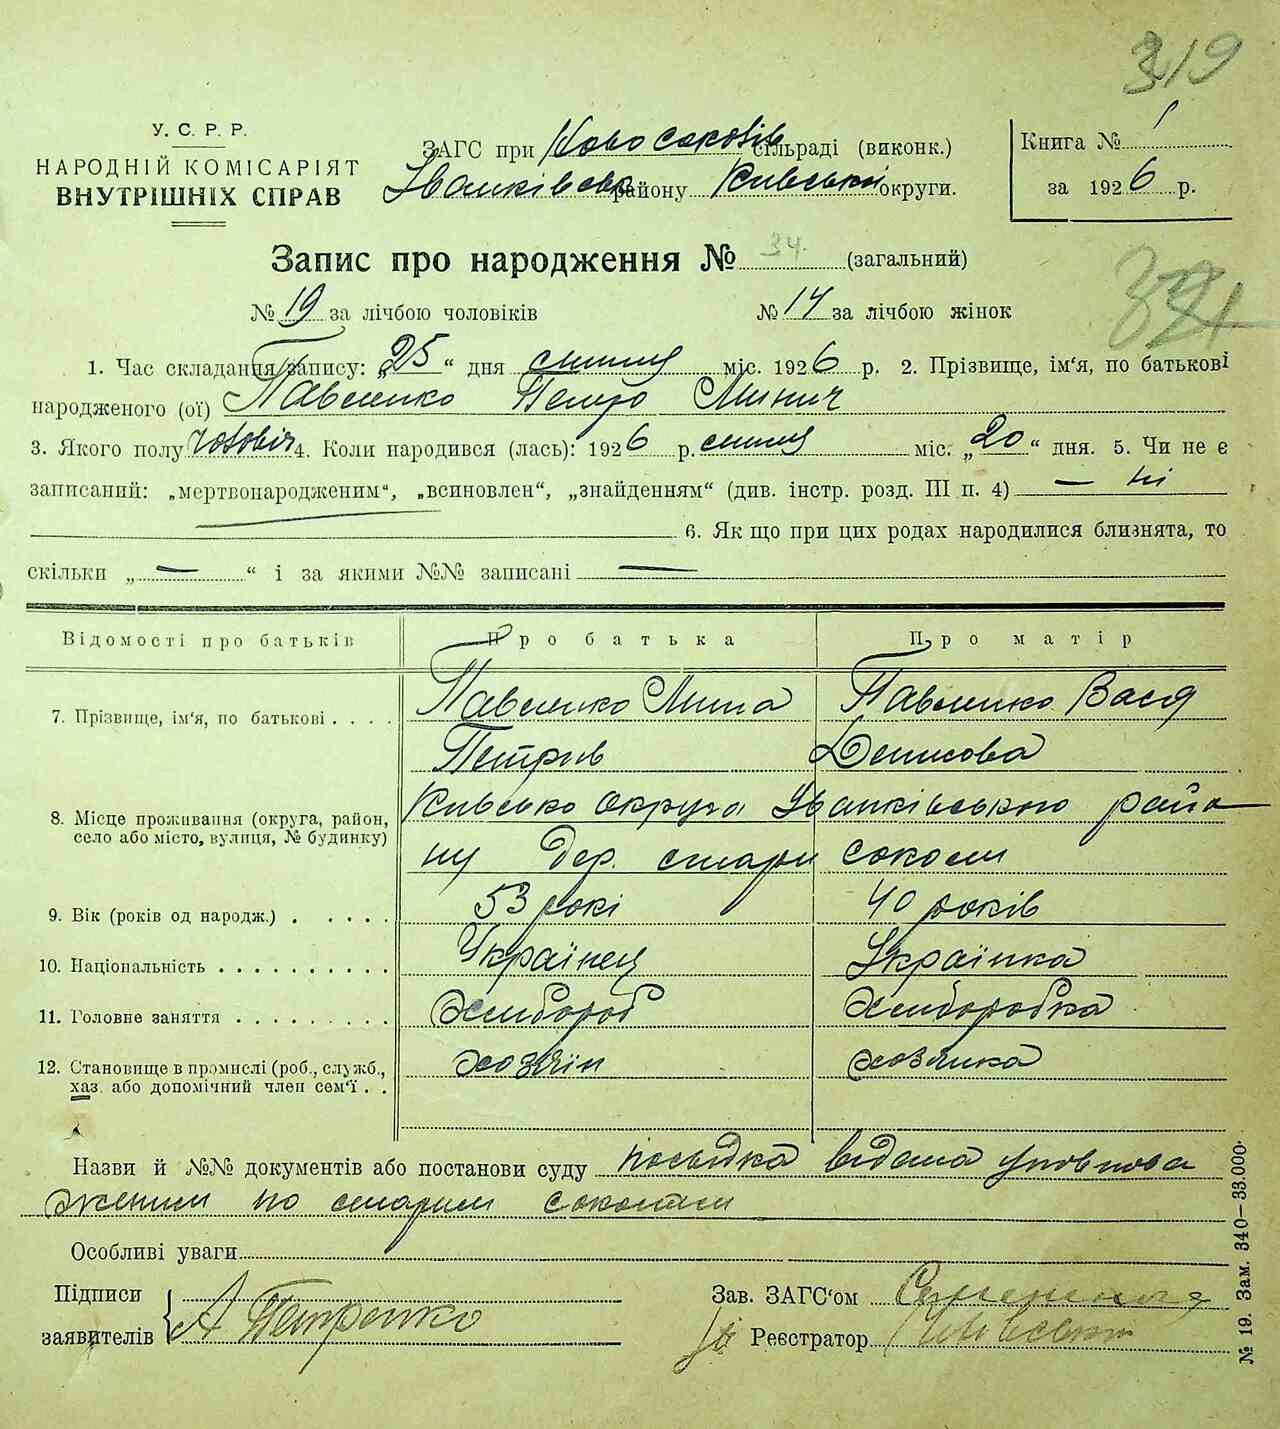 319
У. С. Р. Р.
НАРОДНІЙ КОМІСАРІЯТ
ВНУТРІШНІХ СПРАВ
ЗАГС при Новосоколів сільраді (виконк.)
Іванківськ району Київської округи.
Книга № 1
за 1926 р.
Запис про народження № 34. (загальний)
№ 19 за лічбою чоловіків № 14 за лічбою жінок
1. Час складання запису: „25“ дня липця міс. 1926 р. 2. Прізвище, ім‘я, по батькові
народженого (ої) Павленко Петро Минич
3. Якого полу чоловіч 4. Коли народився (лась): 1926 р. липця міс. „20“ дня. 5. Чи не є
записаний: „мертвонародженим“, „всиновлен“, „знайденням“ (див. інстр. розд. III п. 4) — ні
6. Як що при цих родах народилися близнята, то
скільки „—“ і за якими №№ записані —
Відомості про батьків Про батька Про матір
7. Прізвище, ім‘я, по батькові . . . . Павленко Мина Павленко Вася
Петрів Денисова
8. Місце проживання (округа, район, село або місто, вулиця, № будинку) Київсько округа Іванківського райо
ну дер. стари соколи
9. Вік (років од народж.) . . . . . 53 рокі 40 років
10. Національність . . . . . . . . . . Українец Українка
11. Головне заняття . . . . . . . . . Хлибороб Хлиборобка
12. Становище в промислі (роб., служб., хаз. або допомічний член сем‘ї . . хозяїн хозяика
Назви й №№ документів або постанови суду посвідка відана уповнова
жении по старим соколам
Особливі уваги
Підписи
заявителів А Петренко
Зав. ЗАГС‘ом
Реєстратор
№ 19. Зам. 340—33.000.